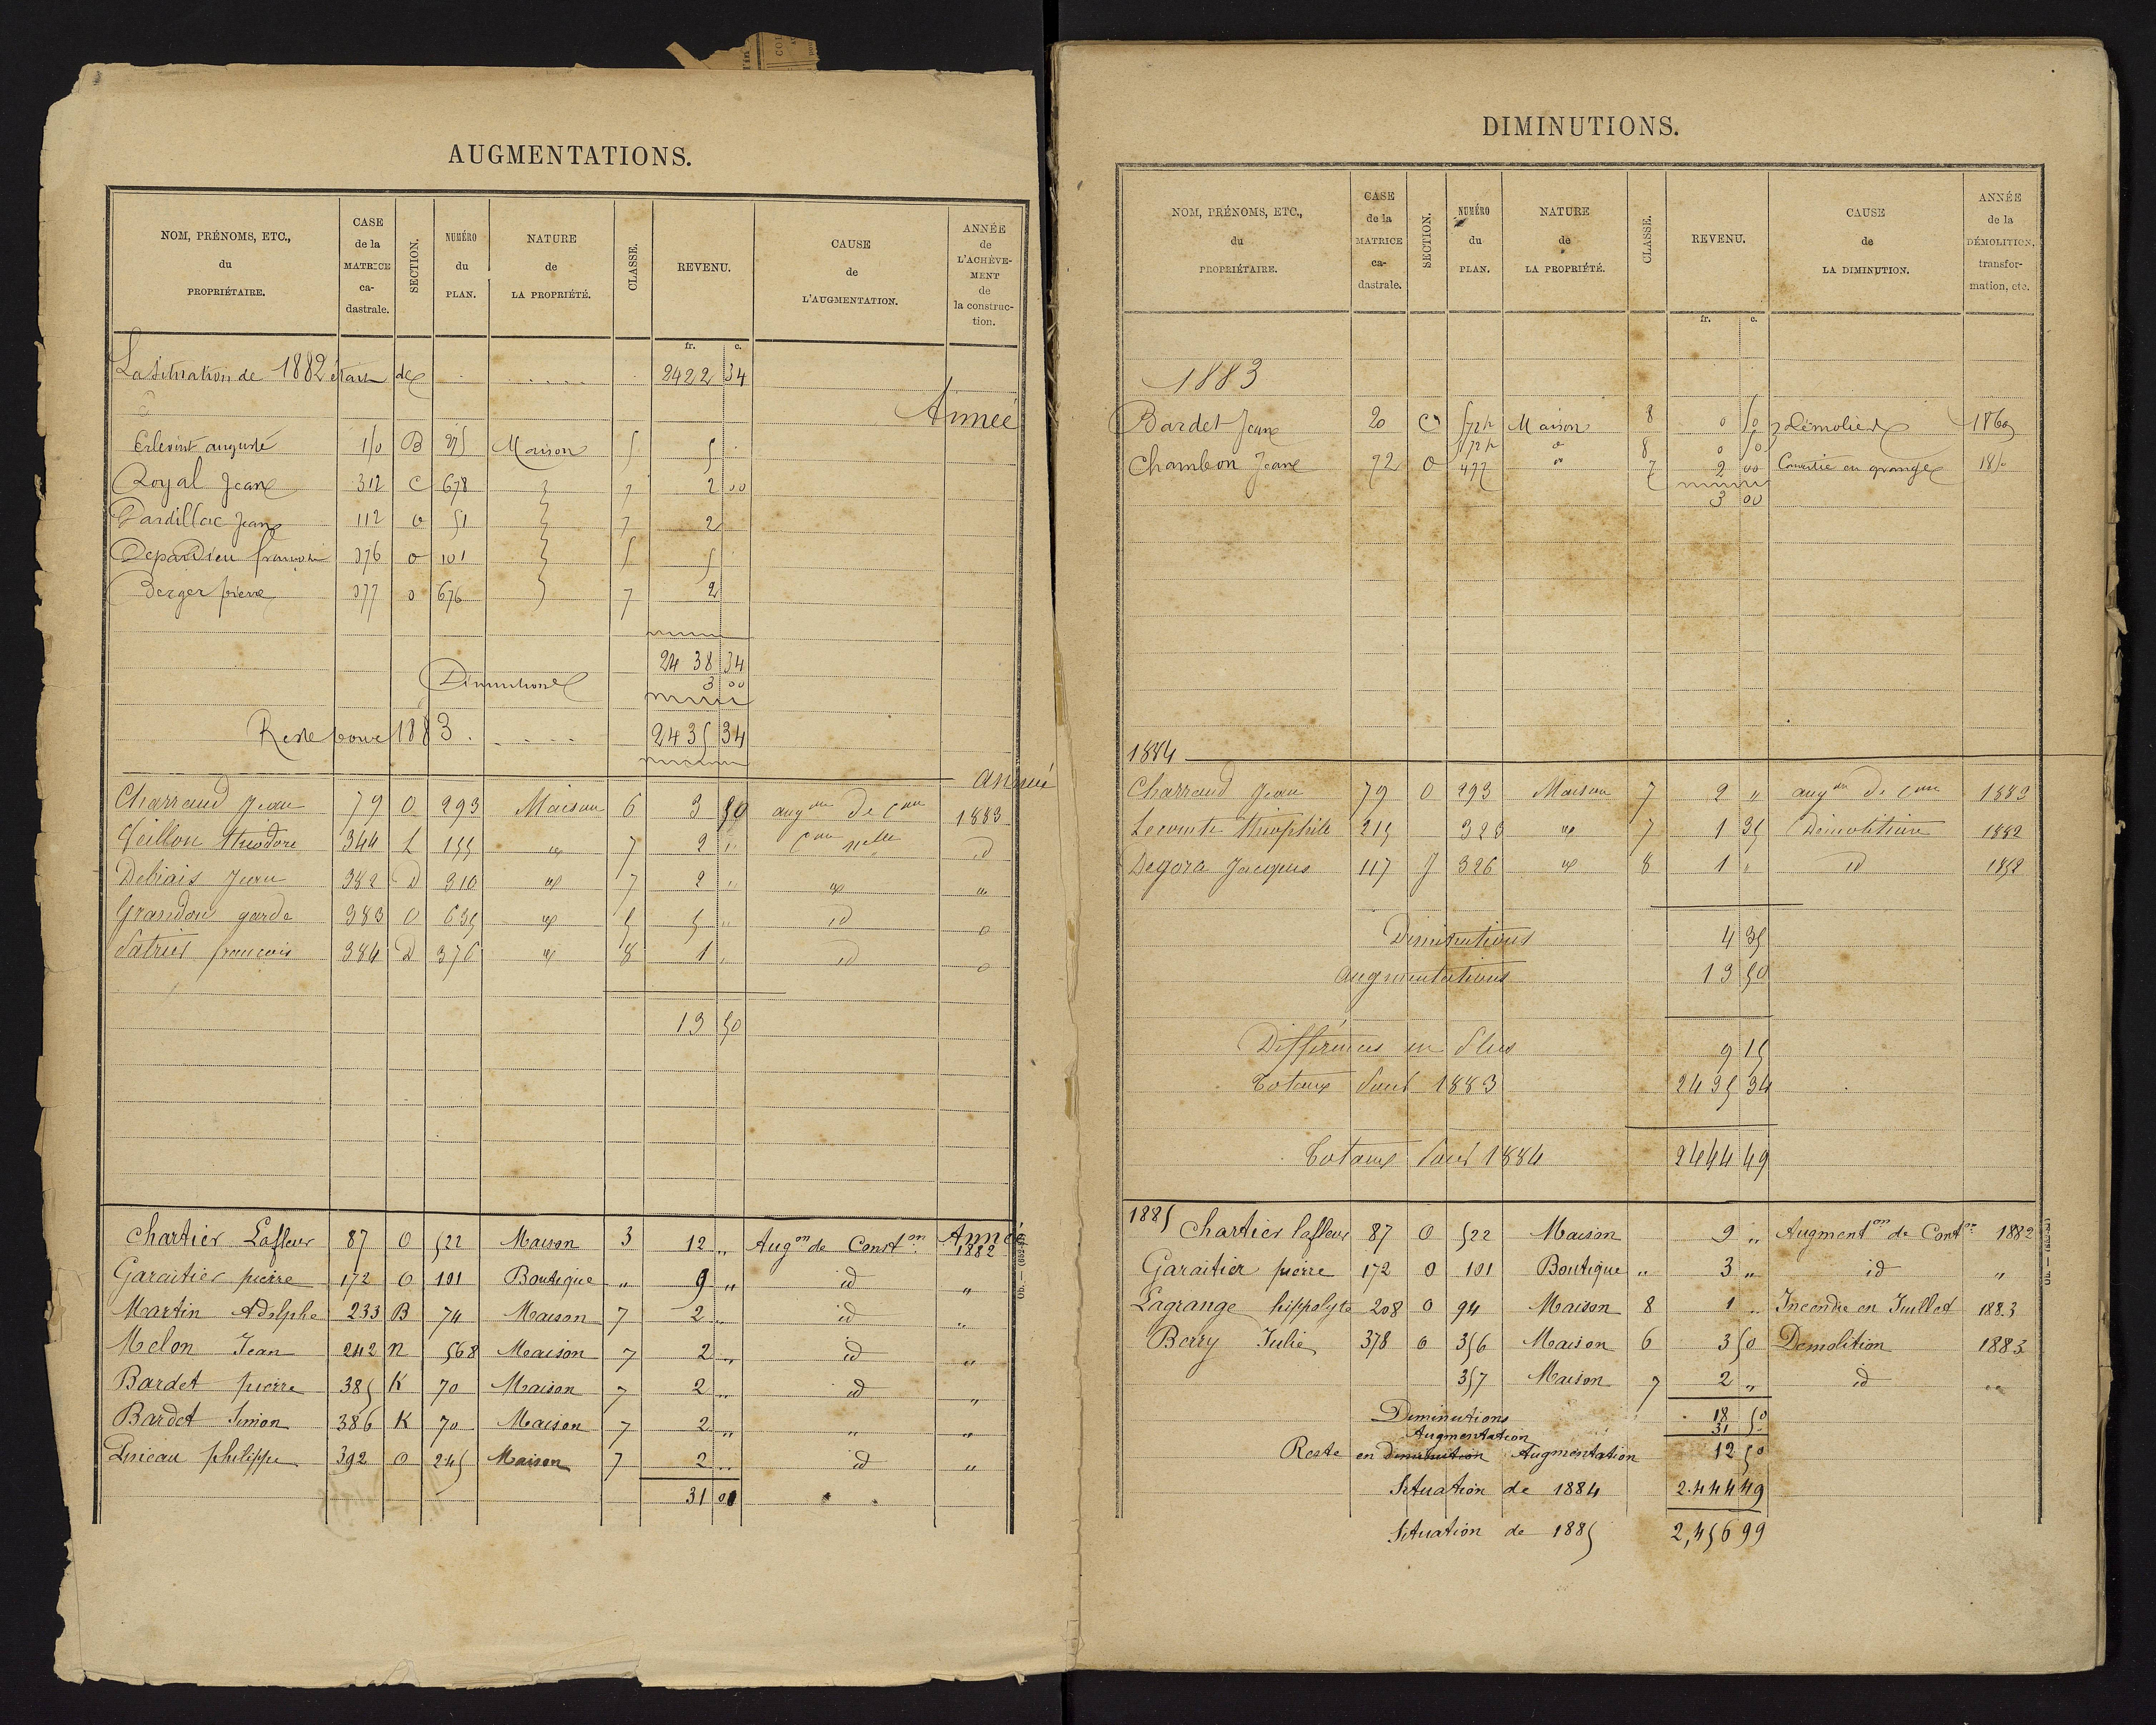 AUGMENTATIONS.
NOM, PRÉNOMS, ETC., du PROPRIÉTAIRE. CASE de la MATRICE ca-dastrale. SECTION. NUMÉRO du PLAN. NATURE de LA PROPRIÉTÉ. CLASSE. REVENU. CAUSE de L'AUGMENTATION. ANNÉE de L'ACHÈVE-MENT de la construc-tion.
fr. c.
La situation de 1882 était de 2422 34
Année
auguste 150 B 275 Maison 5 5
Royal Jean 312 C 678 7 2 00
Dardillac Jean 112 O 51 7 2
Depardieu françois 376 O 101 5 5
Berger pierre 377 O 676 7 2
2438 34
Diminutions 3 00
Reste pour 1883 2435 34
année
Charraud Jean 79 O 293 Maison 6 3 50 augon de con 1883
Veillon théodore 344 L 155 " 7 2 " con nelle id
Debiais Jean 382 D 310 " 7 2 " " "
Grandon garde 383 O 635 " 5 5 " id
françois 384 D 376 " 8 1 " id
13 50
Année
Chartier Lafleur 87 O 522 Maison 3 12 " Augon de Conston 1882
Garaitier pierre 172 O 101 Boutique " 9 " id "
Martin Adolphe 233 B 74 Maison 7 2 " id "
Melon Jean 242 n 568 Maison 7 2 " id "
Bardet pierre 385 K 70 Maison 7 2 " id "
Bardet Simon 386 K 70 Maison 7 2 " " "
philippe 392 O 245 Maison 7 2 " id "
31 00
DIMINUTIONS.
NOM, PRÉNOMS, ETC., du PROPRIÉTAIRE. CASE de la MATRICE ca-dastrale. SECTION. NUMÉRO du PLAN. NATURE de LA PROPRIÉTÉ. CLASSE. REVENU. CAUSE de LA DIMINUTION. ANNÉE de la DÉMOLITION, transfor-mation, etc.
fr. c.
1883
Bardet Jean 20 C 572p Maison 8 0 50 démolie 1860
572p " 8 0 50
Chambon Jean 72 O 477 " 7 2 00 Convertie en grange 1850
3 00
1884
Charraud Jean 79 O 293 Maison 7 2 " augon de con 1883
Lecomte théophile 215 323 " 7 1 35 Démolition 1882
Degora Jacques 117 J 326 " 8 1 " id
Diminutions 4 35
Augmentations 13 50
Différences en Plus 9 15
Totaux Pour 1883 2435 34
Totaux Pour 1884 2444 49
1885
Chartier lafleur 87 O 522 Maison 9 " Augmenton de Conton 1882
Garaitier pierre 172 O 101 Boutique " 3 " id "
Lagrange hippolyte 208 O 94 Maison 8 1 " Incendie en Juillet 1883
Berry Julie 378 O 356 Maison 6 3 50 Demolition 1883
357 Maison 7 2 " id "
Diminutions 18 50
Augmentation 31 "
Reste en diminution Augmentation 12 50
Situation de 1884 2.444 49
Situation de 1885 2,456 99